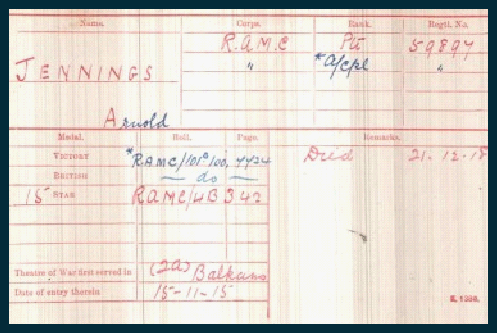 Name. Corps. Rank. Regtl. No.
R.A.M.C Pte 59897
JENNINGS " *A/Cpl "
Arnold
Medal. Roll. Page. Remarks.
VICTORY *RAMC/101 B 100, 7724 Died 21-12-18
BRITISH — do —
15 STAR RAMC/4B 342
Theatre of War first served in (2a) Balkans
Date of entry therein 15-11-15
K. 1380.